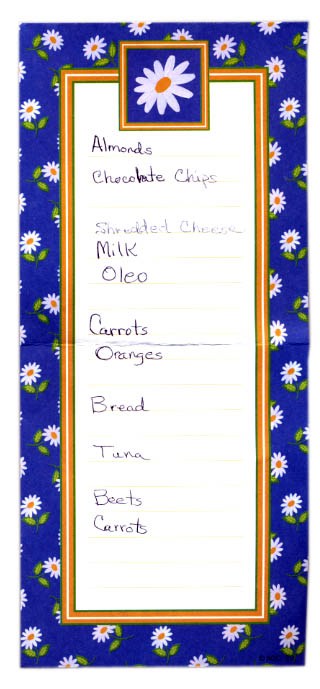 Almonds
Chocolate Chips
Shredded Cheese
Milk
Oleo
Carrots
Oranges
Bread
Tuna
Beets
Carrots